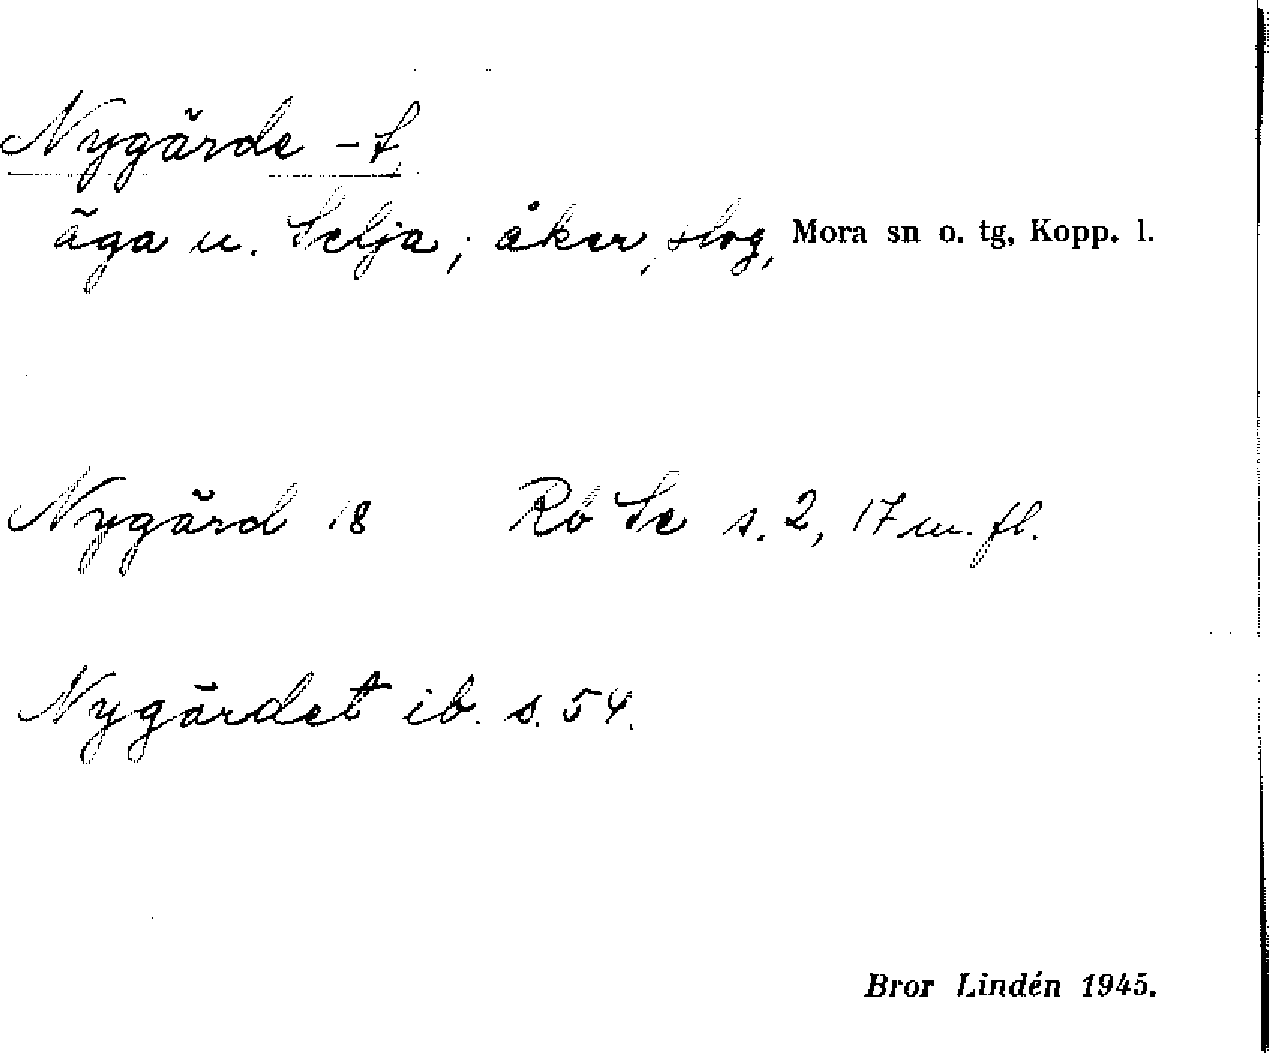 Nygärde -t,
äga u. Selja; åker, slog, Mora sn o. tg, Kopp. l.
Nygärd 18 Rb Se s. 2, 17 m. fl.
Nygärdet ib. s. 54.
Bror Lindén 1945.